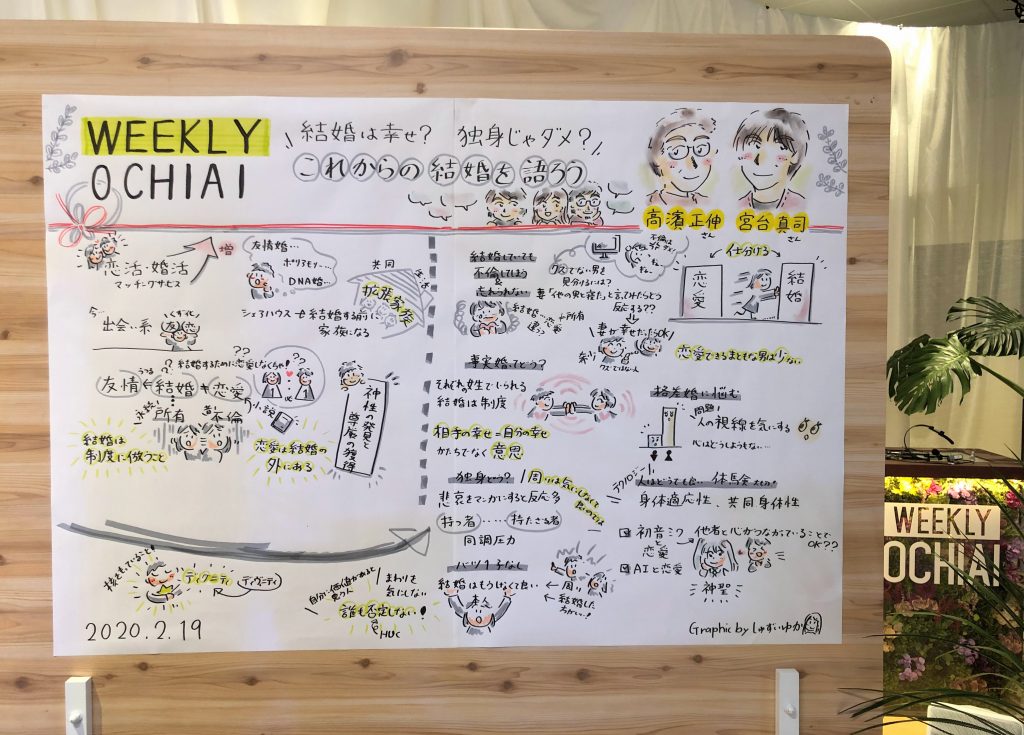 WEEKLY
OCHIAI
結婚は幸せ? 独身じゃダメ?
これからの結婚を語ろう
高濱正伸さん
宮台真司さん
恋活・婚活
マッチングサービス
増
友情婚…
ポリアモリー…
DNA婚…
共同
拡張家族
シェアハウス
結婚する前に
家族になる
今…
出会い系
??
結婚するために恋愛しなくちゃ!
??
友情
結婚
恋愛
永続
所有
不倫
小説
結婚は
制度に倣うこと
恋愛は結婚の
外にある
神性の発見と
尊厳の獲得
ディグニティ
自分に価値があると
思う人
まわりを
気にしない
誰も否定しない!
HUC
2020.2.19
結婚していても
不倫してしまう
&
忘れられない
結婚…恋愛
違う
+所有
クズでない男を
見分けるには?
妻「他の男と寝た」と言てれたらどう
反応する??
妻が幸せだったらOK!
クズではない人
仕分ける
恋愛
結婚
恋愛できるまともな男は少ない
事実婚ってどう?
結婚は制度
相手の幸せ=自分の幸せ
かたちでなく意思
格差婚に悩む
問題!
人の視線を気にする
心はどうしようもない…
独身どう?
悲哀をマンガにすると反応多
持つ者……持たざる者
同調圧力
テクノロジー
人はどうでも良い
身体適応性、共同身体性
初音ミク
と
恋愛
他者と心がつながっていることで
OK??
AIと恋愛
神聖
バツ1子なし
結婚はもうしなくて良い
本人
周り
結婚した
方がいい!
Graphic by しゅずいゆか
WEEKLY
OCHIAI